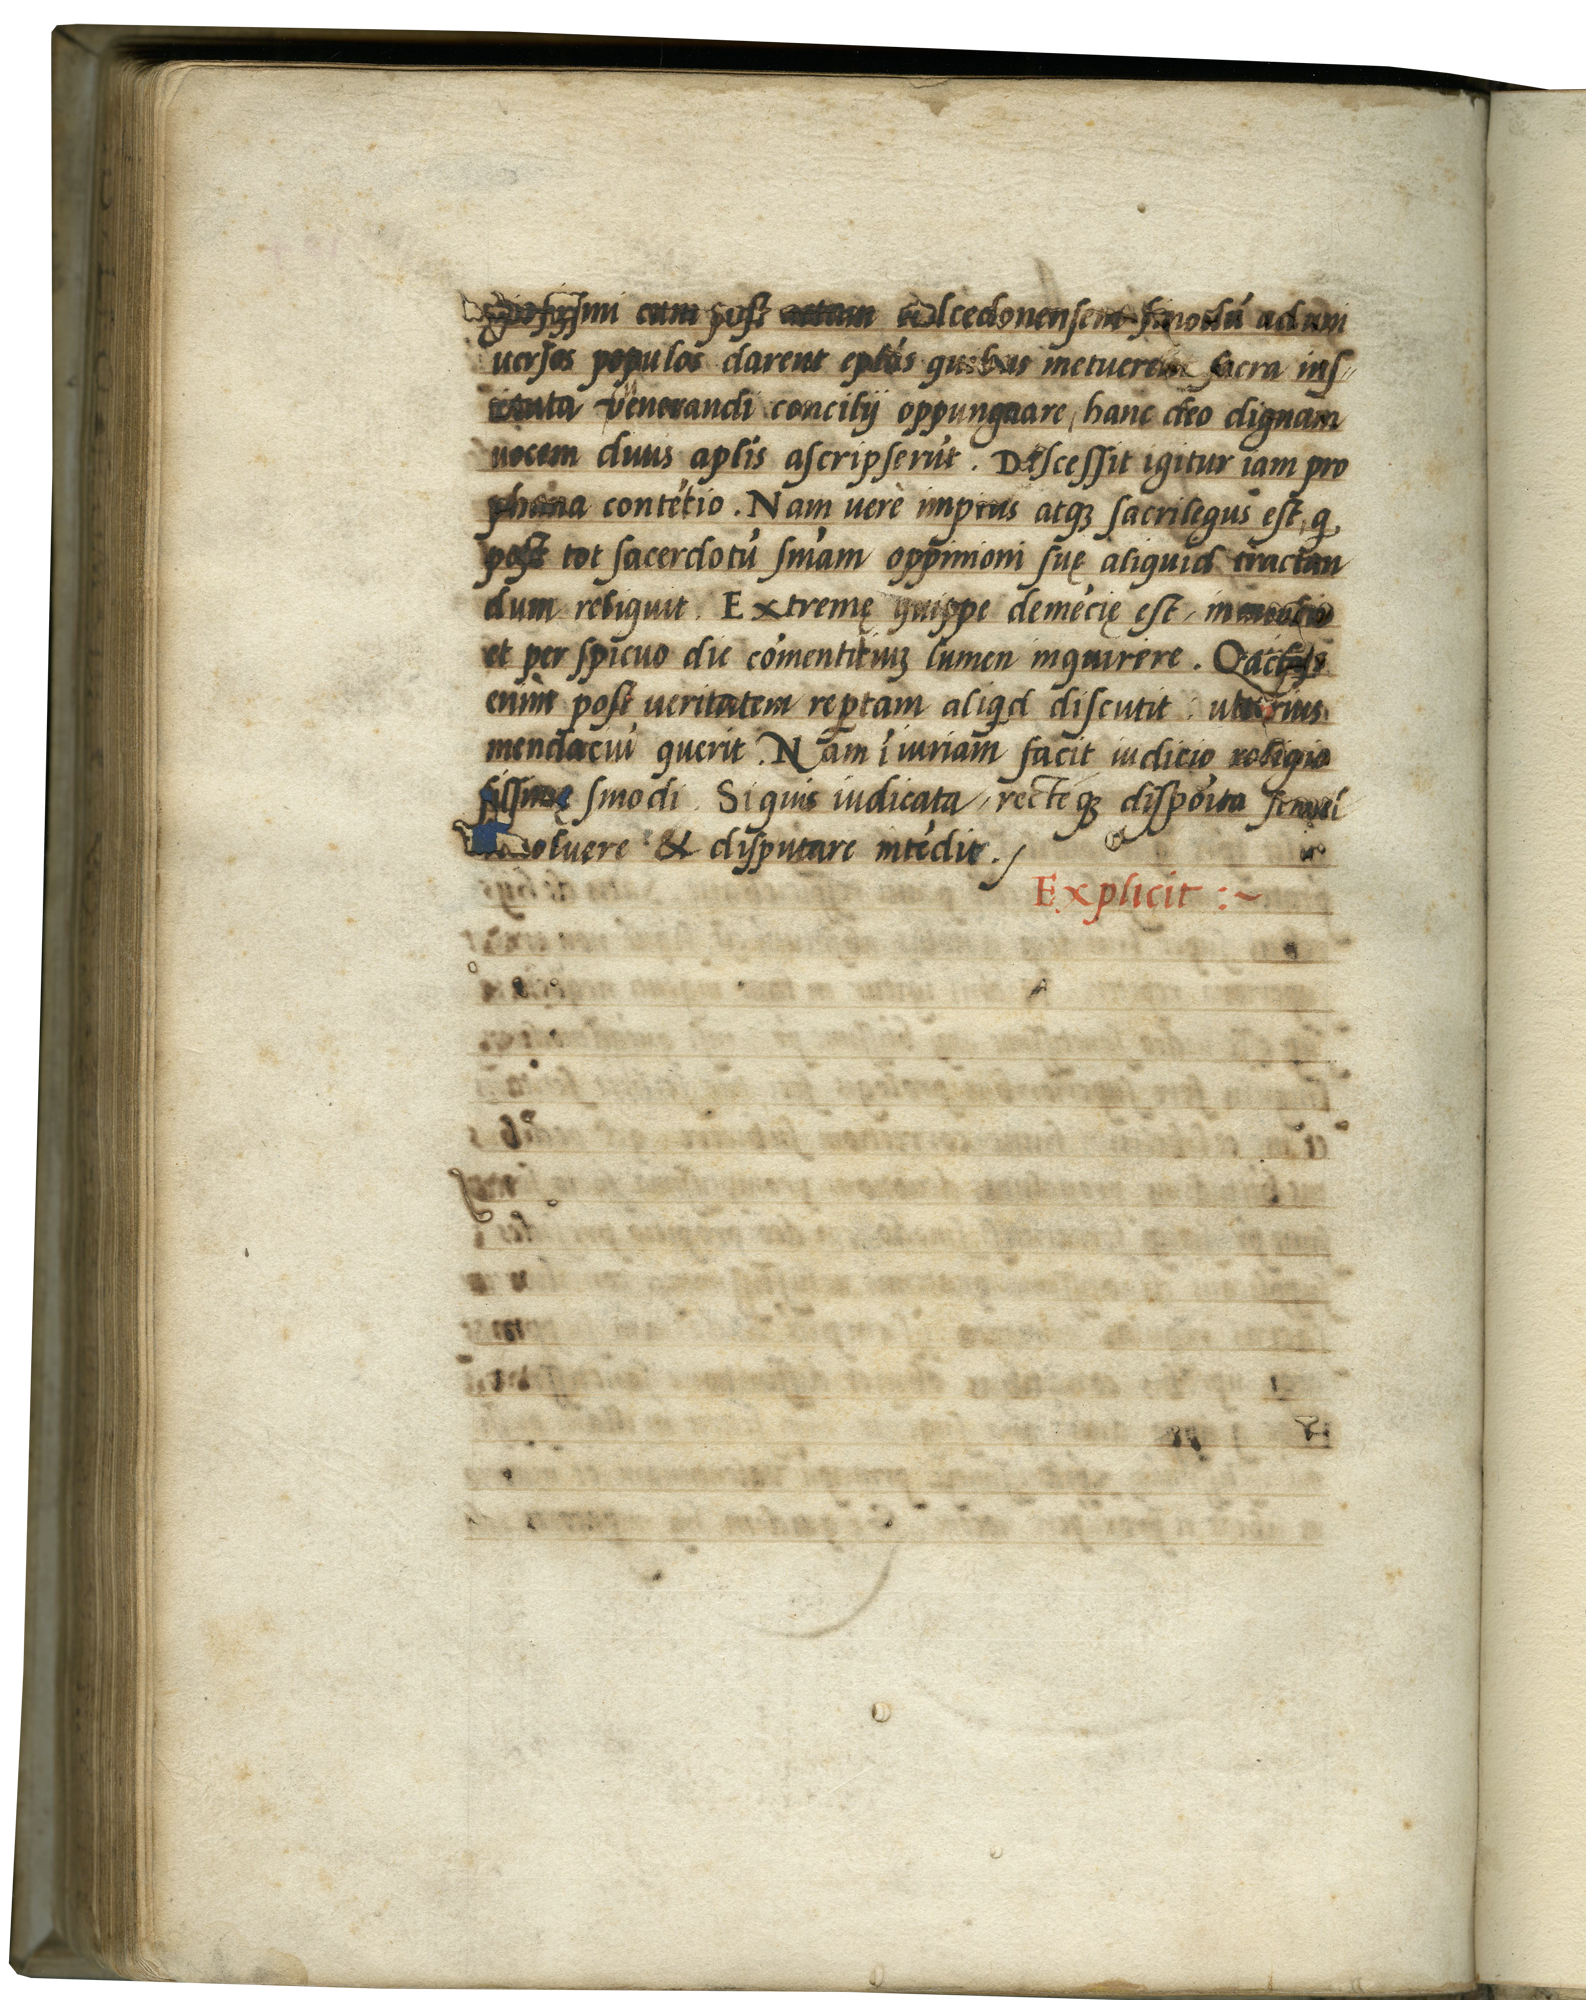 giosissimi cum post actam calcedonensem sinodũ ad uni
uersos populos darent eplãs quibus metuerent sacra ins-
tituta venerandi concilij oppungnare, hanc deo dignam
uocem diuis aplis ascripserũt. Discessit igitur iam pro
phana contẽtio. Nam verè impius atqꝫ sacrilegus est, q̃
post tot sacerdotũ sniam oppinioni suę aliquid tractan
dum reliquit. Extremę quippe demẽcię est, in
et perspicuo die cõmentitiuꝫ lumen inquirere. Q
enim post ueritatem reptam aliqd discutit ulterius
mendaciũ querit. Nam ĩiuriam facit iudicio religio
sissimę sinodi. Si quis iudicata, recteqꝫ disposita semel
uoluere & disputare intẽdit.
Explicit :~